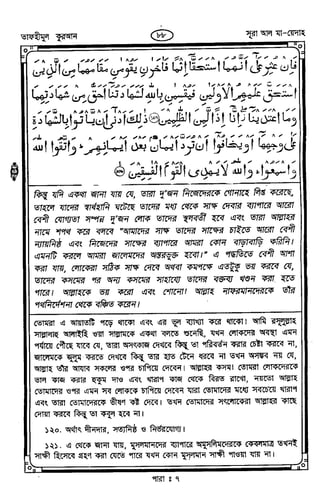 তাফহীমুল কুরআন
৮৮
সূরা আল মা-য়েদাহ
فَإِنْ عُثِرَ عَلَىٰ أَنَّهُمَا اسْتَحَقَّا إِثْمًا فَآخَرَانِ يَقُومَانِ مَقَامَهُمَا مِنَ الَّذِينَ
اسْتَحَقَّ عَلَيْهِمُ الْأَوْلَيَانِ فَيُقْسِمَانِ بِاللَّهِ لَشَهَادَتُنَا أَحَقُّ مِنْ شَهَادَتِهِمَا
وَمَا اعْتَدَيْنَا إِنَّا إِذًا لَمِنَ الظَّالِمِينَ ذَٰلِكَ أَدْنَىٰ أَنْ يَأْتُوا بِالشَّهَادَةِ
عَلَىٰ وَجْهِهَا أَوْ يَخَافُوا أَنْ تُرَدَّ أَيْمَانٌ بَعْدَ أَيْمَانِهِمْ وَاتَّقُوا اللَّهَ
وَاسْمَعُوا وَاللَّهُ لَا يَهْدِي الْقَوْمَ الْفَاسِقِينَ
কিন্তু যদি একথা জানা যায় যে, তারা দু'জন নিজেদেরকে গোনাহে লিপ্ত করেছে,
তাহলে যাদের স্বার্থহানি ঘটেছে তাদের মধ্য থেকে সাক্ষ দেবার ব্যাপারে আরো
বেশী যোগ্যতা সম্পন্ন দু'জন লোক তাদের স্থলবর্তী হবে এবং তারা আল্লাহর
নামে শপথ করে বলবে "আমাদের সাক্ষ তাদের সাক্ষের চাইতে আরো বেশী
ন্যায়নিষ্ঠ এবং নিজেদের সাক্ষের ব্যাপারে আমরা কোন বাড়াবাড়ি করিনি।
এমনটি করলে আমরা জালেমদের অন্তরভুক্ত হবো।" এ পদ্ধতিতে বেশী আশা
করা যায়, লোকেরা সঠিক সাক্ষ দেবে অথবা কমপক্ষে এতটুকু ভয় করবে যে,
তাদের কসমের পর অন্য কসমের সাহায্যে তাদের বক্তব্য খণ্ডন করা হতে
পারে। আল্লাহকে ভয় করো এবং শোনো। আল্লাহ নাফরমানদেরকে তাঁর
পথনির্দেশনা থেকে বঞ্চিত করেন।
তোমরা এ আয়াতটি পড়ে থাকো এবং এর ভুল ব্যাখ্যা করে থাকো। আমি রসূলুল্লাহ
সাল্লাল্লাহু আলাইহি ওয়া সাল্লামকে একথা বলতে শুনেছি, যখন লোকদের অবস্থা এমন
পর্যায়ে পৌছে যাবে যে, তারা অসৎকাজ দেখবে কিন্তু তা পরিবর্তন করার চেষ্টা করবে না,
জালেমকে জুলুম করতে দেখবে কিন্তু তার হাত টেনে ধরবে না তখন অসম্ভব নয় যে,
আল্লাহ তাঁর আযাব সকলের ওপর চাপিয়ে দেবেন। আল্লাহর কসম। তোমরা লোকদেরকে
ভাল কাজ করার হুকুম দাও এবং খারাপ কাজ থেকে বিরত রাখো, নয়তো আল্লাহ
তোমাদের ওপর এমন সব লোককে চাপিয়ে দেবেন যারা তোমাদের মধ্যে সবচেয়ে খারাপ
এবং তারা তোমাদেরকে ভীষণ কষ্ট দেবে। তখন তোমাদের সৎলোকেরা আল্লাহর কাছে
দোয়া করবে কিন্তু তা কবুল হবে না।
১২০. অর্থাৎ দীনদার, সত্যনিষ্ঠ ও নির্ভরযোগ্য।
১২১. এ থেকে জানা যায়, মুসলমানদের ব্যাপারে অমুসলিমদেরকে কেবলমাত্র তখনই
সাক্ষী হিসেবে গ্রহণ করা যেতে পারে যখন কোন মুসলমান সাক্ষী পাওয়া যায় না।
পারা : ৭